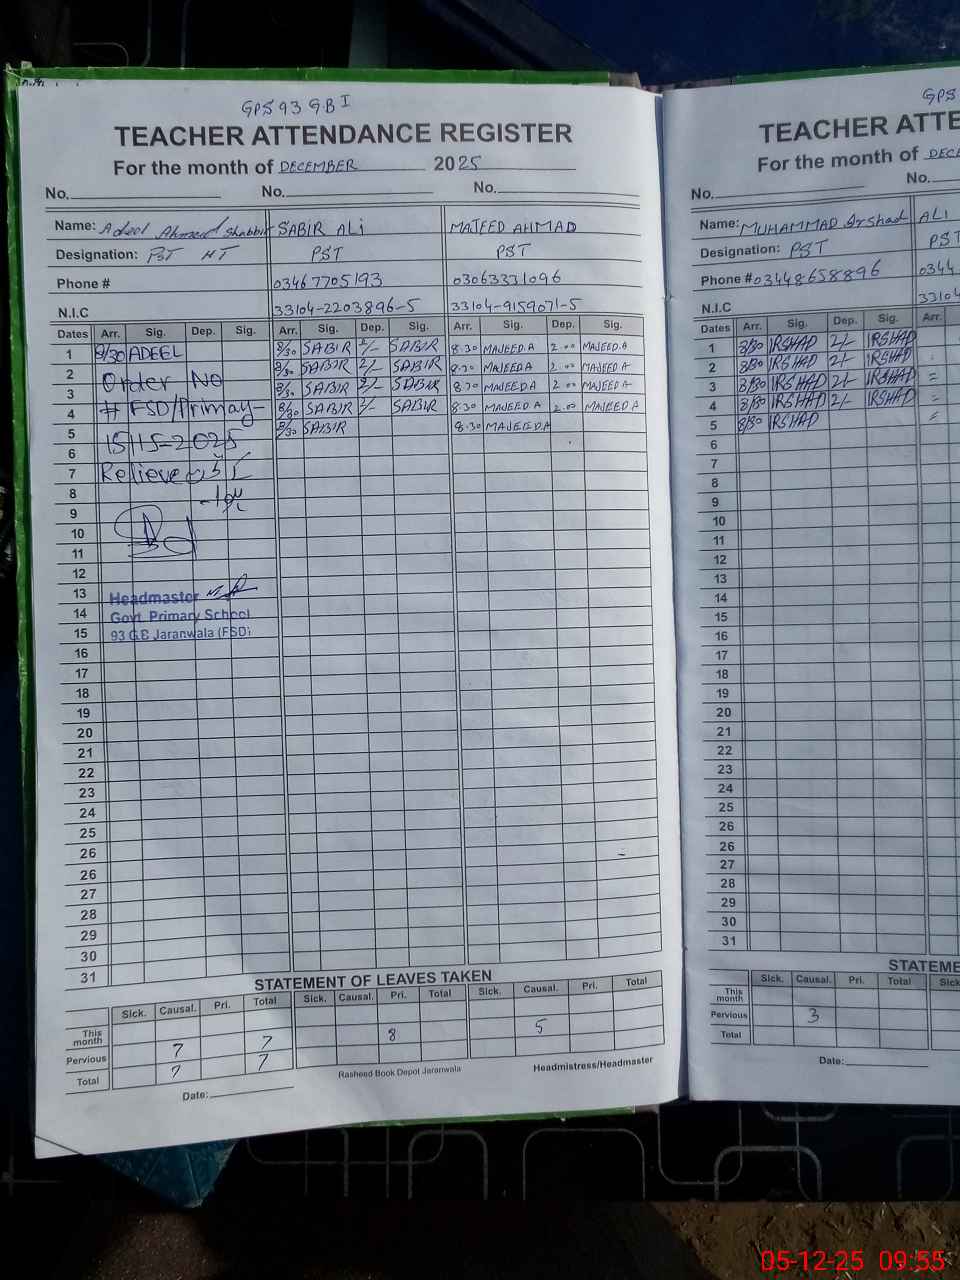 GPS 93 GB I
TEACHER ATTENDANCE REGISTER
For the month of DECEMBER 2025
No. No. No.
Name: Adeel Ahmed Shabbir SABIR ALi MAJEED AHMAD
Designation: PST HT PST PST
Phone # 03467705193 03063371096
N.I.C 33104-2203896-5 33104-9159071-5
Dates Arr. Sig. Dep. Sig. Arr. Sig. Dep. Sig. Arr. Sig. Dep. Sig.
1 8/30 ADEEL 8/30 SABIR 2/- SABIR 8.30 MAJEED.A 2.00 MAJEED.A
2 8/30 SABIR 2/- SABIR 8.30 MAJEED A 2.00 MAJEED A
3 Order No 8/30 SABIR 2/- SABIR 8.30 MAJEED.A 2.00 MAJEED A
4 # FSD/Primay- 8/30 SABIR 2/- SABIR 8.30 MAJEED A 2.00 MAJEED A
5 8/30 SABIR 8.30 MAJEED.A
6 15115-2025
7 Relieve
8
9
10
11
12
13 Headmaster
14 Govt. Primary School
15 93 G.B Jaranwala (FSD)
16
17
18
19
20
21
22
23
24
25
26
26
27
28
29
30
31
STATEMENT OF LEAVES TAKEN
Sick. Causal. Pri. Total Sick. Causal. Pri. Total Sick. Causal. Pri. Total
This month
Pervious 7 7 8 5
Total 7 7
Date: Rasheed Book Depot Jaranwala Headmistress/Headmaster
GPS
TEACHER ATTE
For the month of DEC
No. No.
Name: MUHAMMAD Arshad ALI
Designation: PST PST
Phone # 03448658896 0344
N.I.C 33104
Dates Arr. Sig. Dep. Sig. Arr.
1 8/30 IRSHAD 2/- IRSHAD
2 8/30 IRSHAD 2/- IRSHAD
3 8/30 IRSHAD 2/- IRSHAD
4 8/30 IRSHAD 2/- IRSHAD
5 8/30 IRSHAD
6
7
8
9
10
11
12
13
14
15
16
17
18
19
20
21
22
23
24
25
26
26
27
28
29
30
31
STATEME
Sick. Causal. Pri. Total Sick
This month
Pervious 3
Total
Date:
05-12-25 09:55